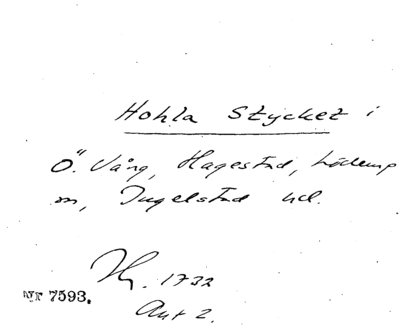 Hohla Stycket i
Ö. Vång, Hagestad, Löderup
m, Ingelstad hd.
1732
Akt 2.
Nr 7593.